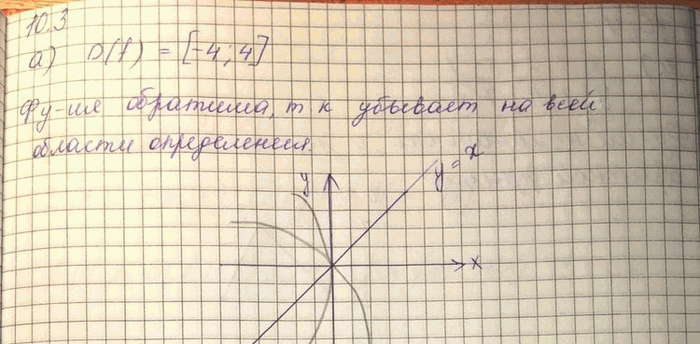 10.3
а) D(f) = [-4; 4]
Фу-ия обратима, т к убывает на всей
области определения.
y
y = x
x